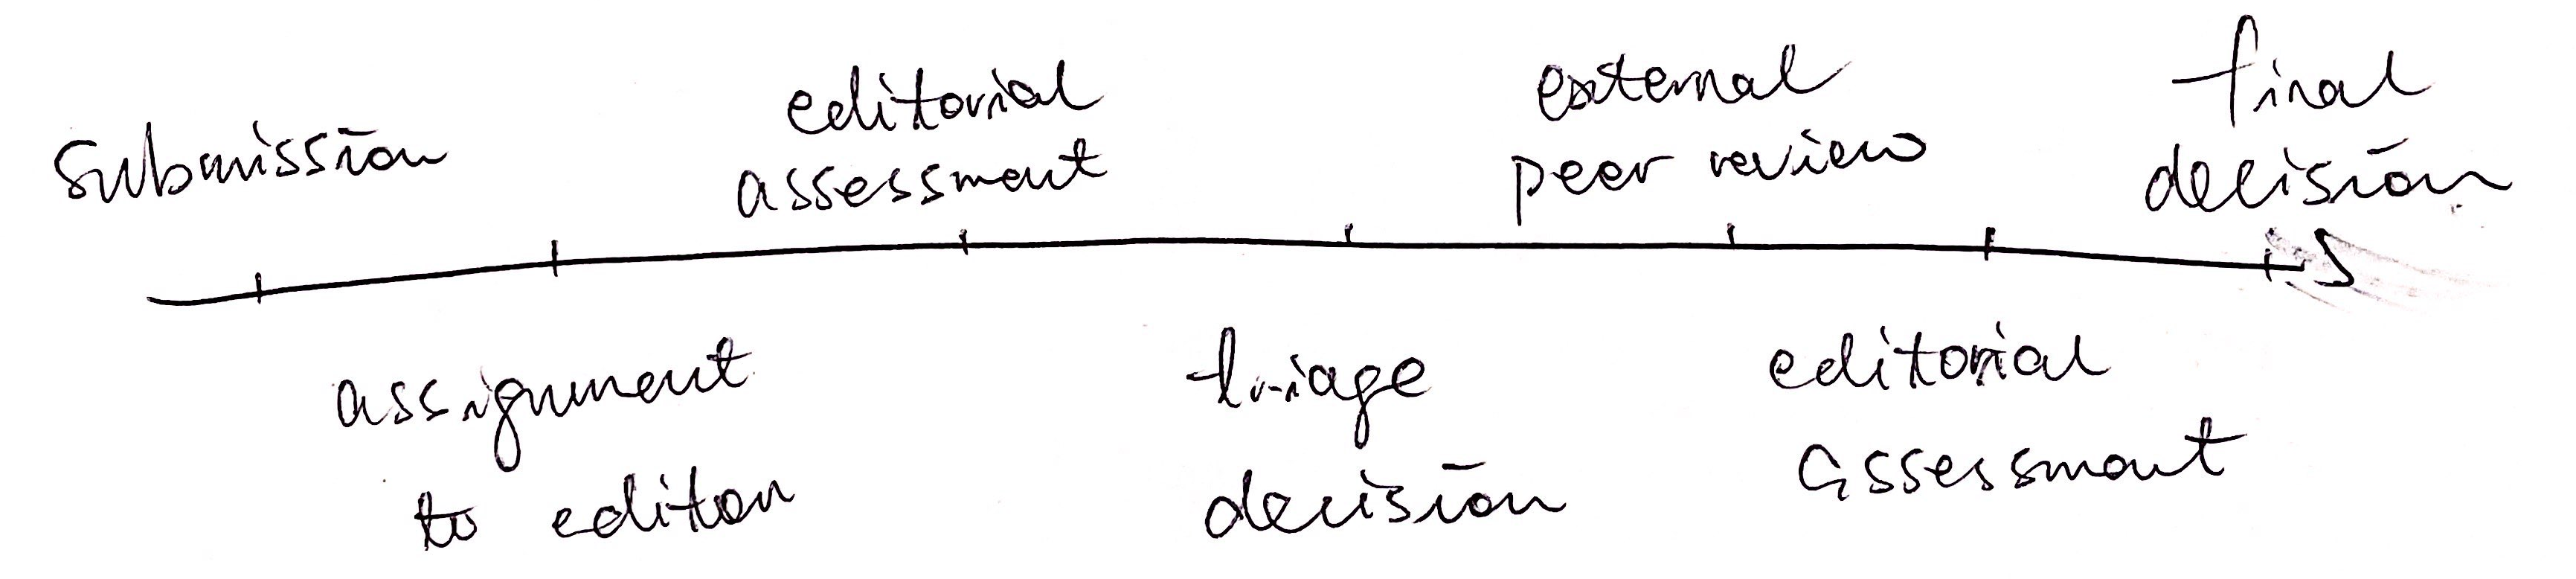 submission
assignment
to editor
editorial
assessment
triage
decision
external
peer review
editorial
assessment
final
decision